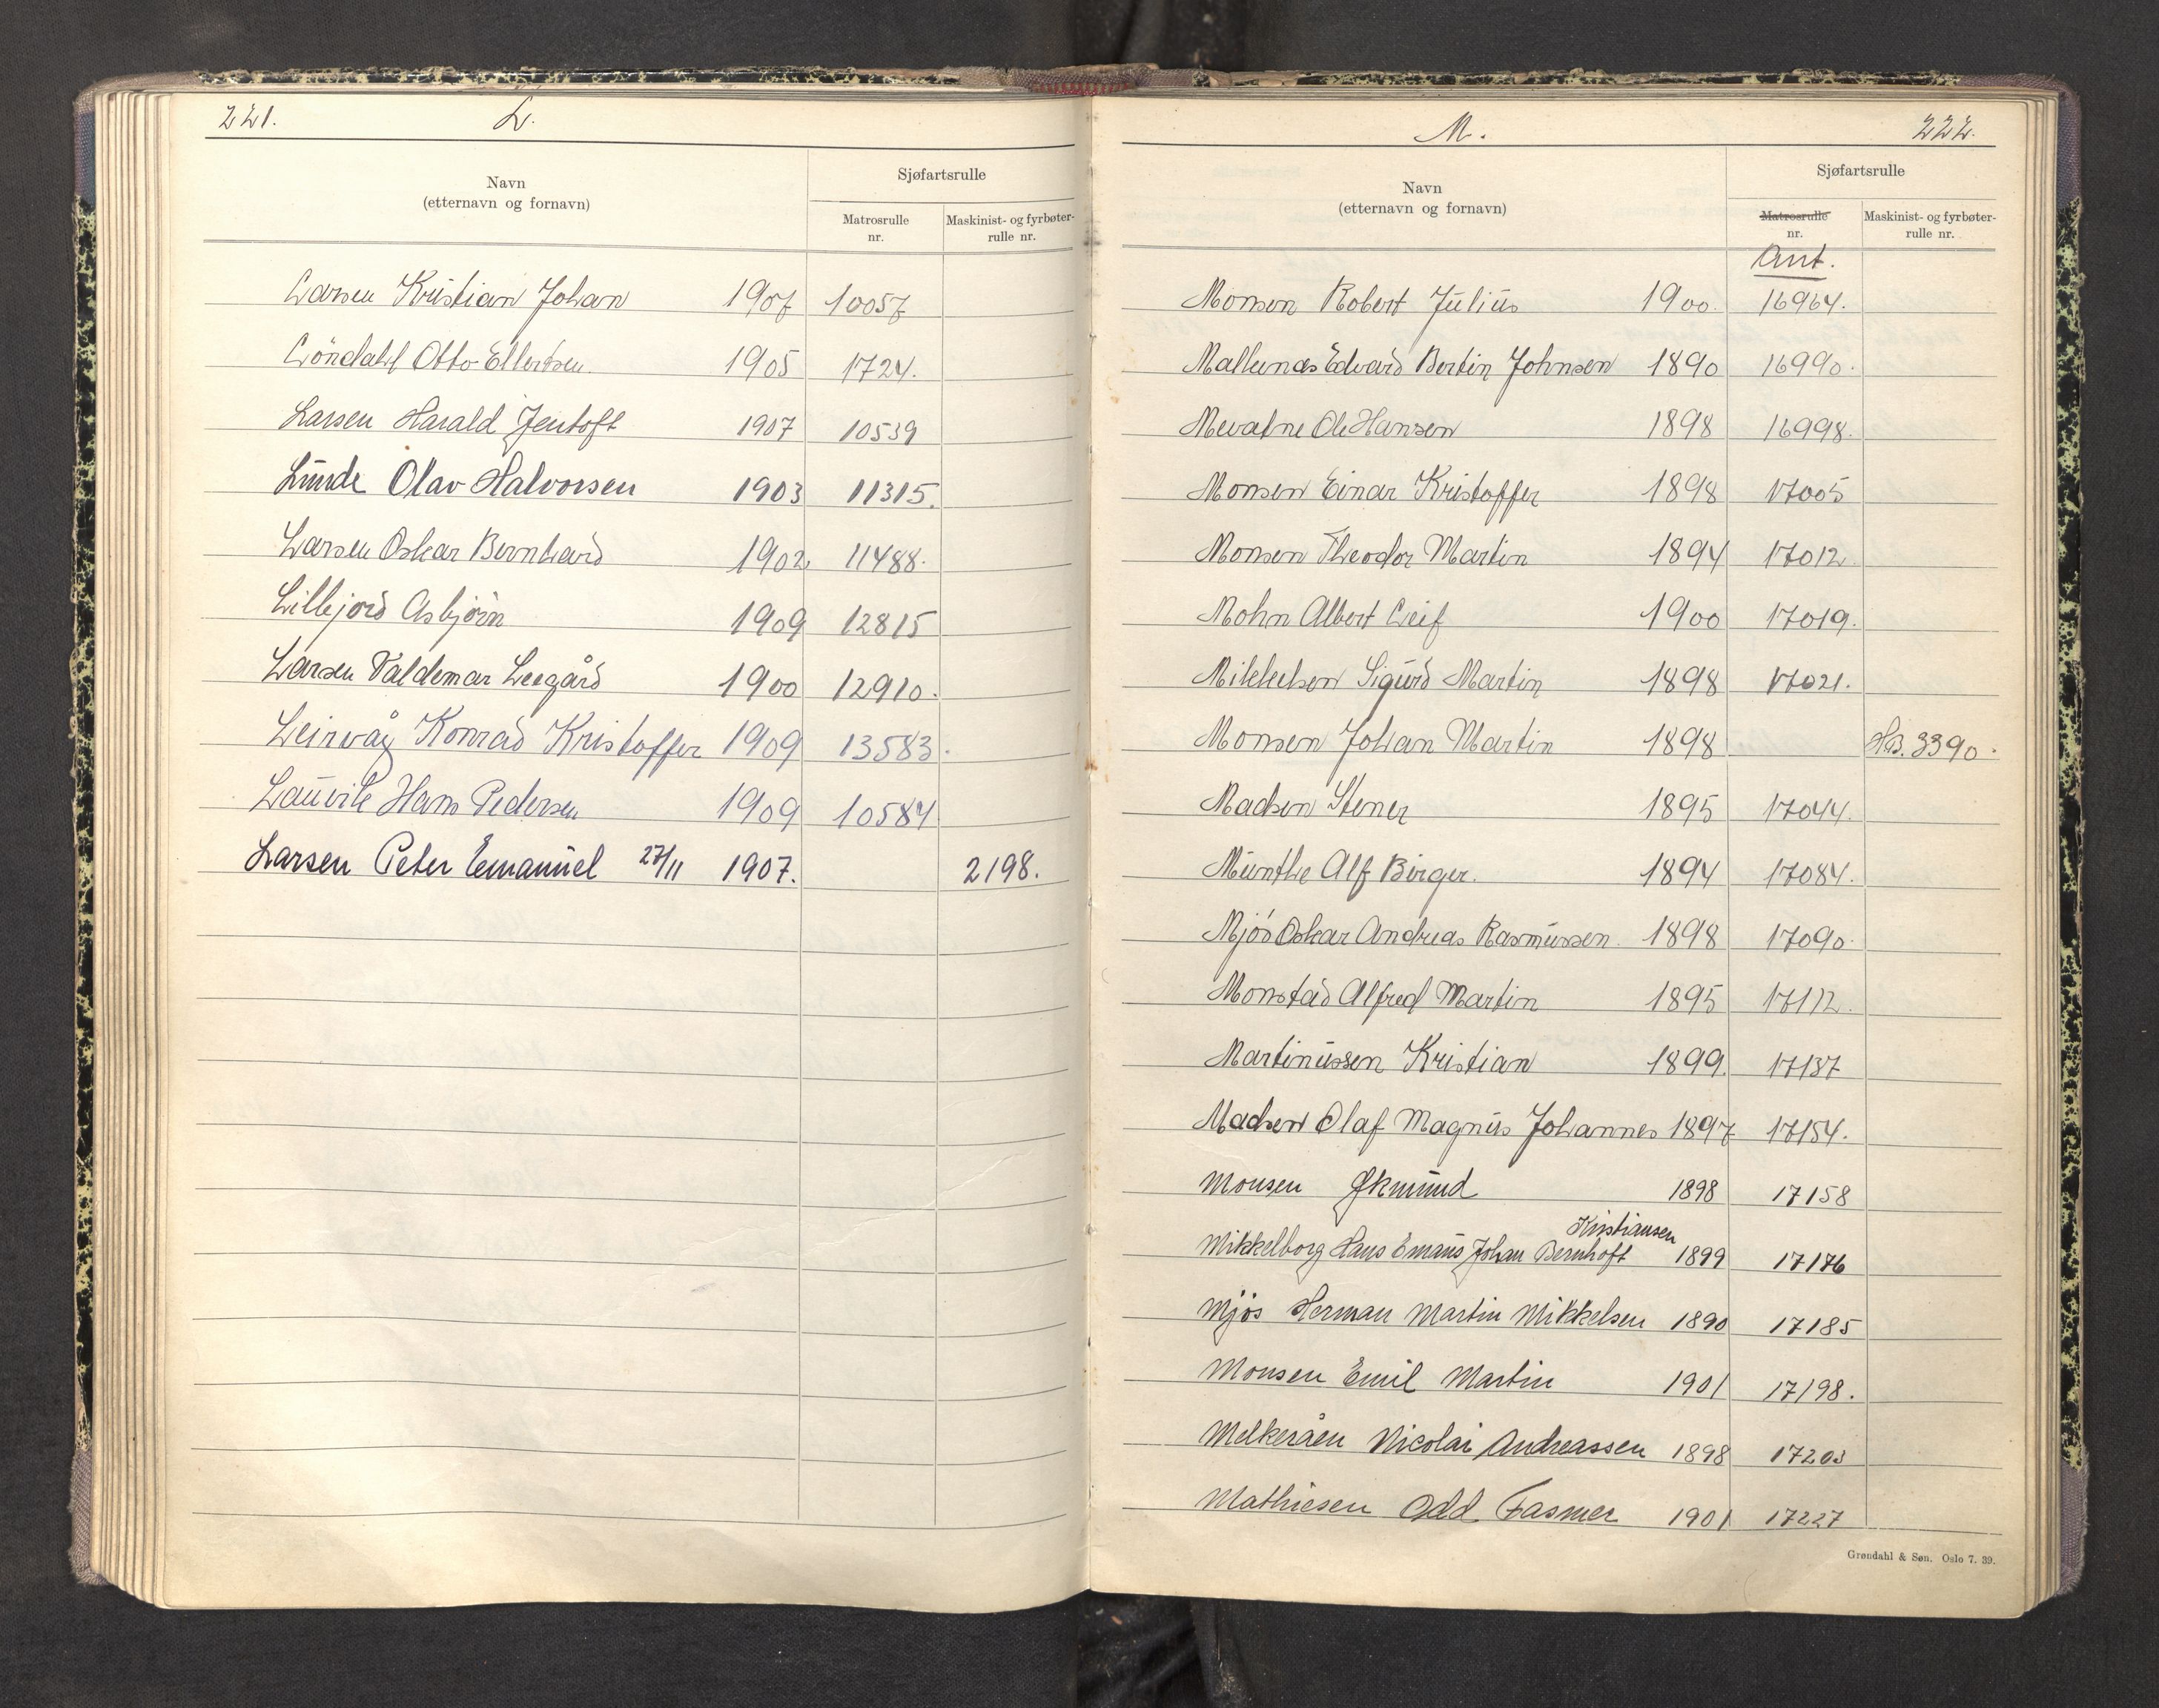 221. L.
Navn
(etternavn og fornavn)
Sjøfartsrulle
Matrosrulle
nr.
Maskinist- og fyrbøter-
rulle nr.
Larsen Kristian Johan 1907 10057
Löndahl Otto Ellertsen. 1905 1724.
Larsen Harald Jentoft 1907 10539
Lunde Olav Halvorsen 1903 11315.
Larsen Oskar Bernhard 1902 11488.
Lillejord Asbjörn 1909 12815
Larsen Valdemar Leegård 1900 12910.
Leirvåg Konrad Kristoffer 1909 13583.
Lauvik Hans Pedersen 1909 10584
Larsen Peter Emanuel 27/11 1907. 2198.
M. 222.
Navn
(etternavn og fornavn)
Sjøfartsrulle
Matrosrulle
nr.
Maskinist- og fyrbøter-
rulle nr.
Ant.
Monsen Robert Julius 1900. 16964.
Edvard Bertin Johnsen 1890 16990.
Mevatne Ole Hansen 1898 16998.
Monsen Einar Kristoffer 1898 17005
Monsen Theodor Martin 1894 17012
Mohn Albert Leif 1900 17019.
Mikkelsen Sigurd Martin 1898 17021.
Monsen Johan Martin 1898 3390.
Madsen Stener 1895 17044.
Munthe Alf Birger. 1894 17084.
Mjös Oskar Andreas Rasmussen 1898 17090.
Monstad Alfred Martin 1895 17112.
Martinussen Kristian 1899. 17137
Madsen Olaf Magnus Johannes 1897 17154.
Monsen Økmund 1898 17158
Kristiansen
Mikkelborg Hans Emaus Johan Bernhoft 1899 17176
Mjös Herman Martin Mikkelsen 1890 17185
Monsen Emil Martin 1901 17198.
Melkeråen Nicolai Andreassen 1898 17203
Mathiesen Odd Fasmer 1901 17227
Grøndahl & Søn. Oslo 7. 39.